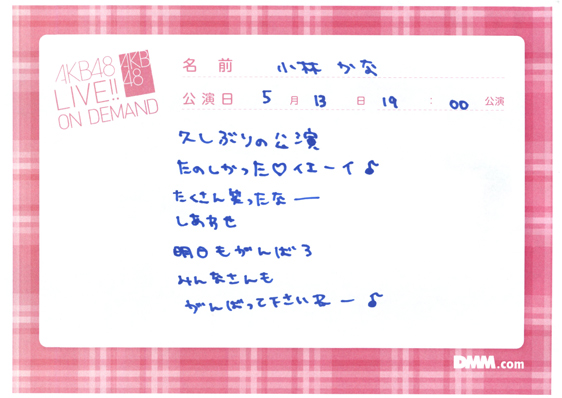 AKB48
LIVE!!
ON DEMAND
AKB
48
名前 小林かな
公演日 5月13日 19:00公演
久しぶりの公演
たのしかった♡イエーイ♪
たくさん笑ったなー
しあわせ
明日もがんばろ
みんなさんも
がんばって下さいねー♪
DMM.com